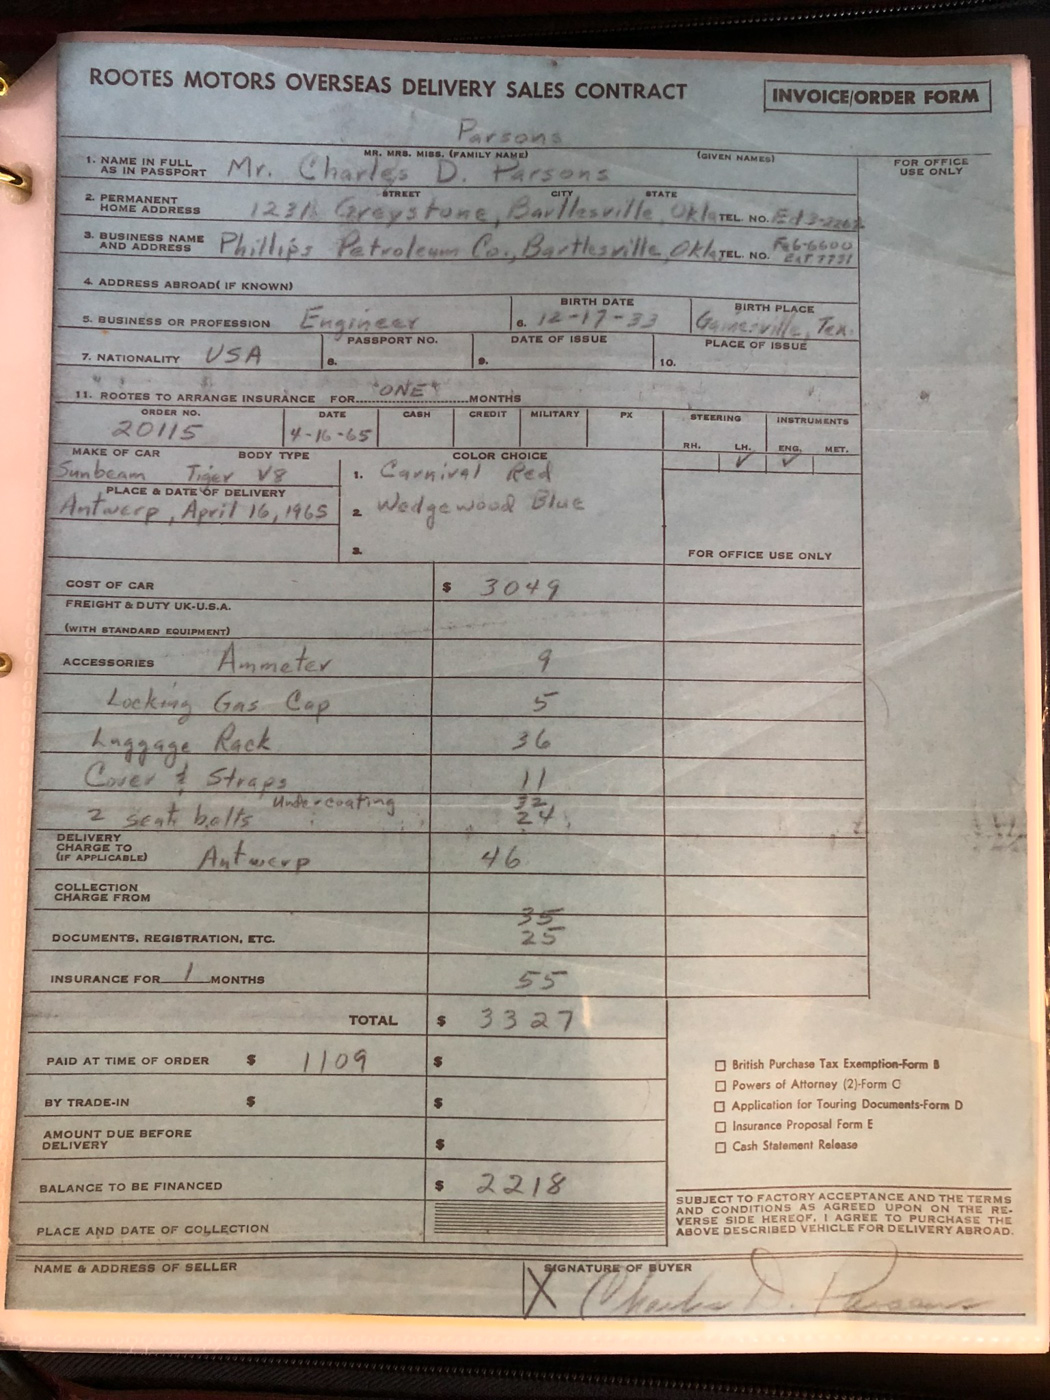 ROOTES MOTORS OVERSEAS DELIVERY SALES CONTRACT
INVOICE/ORDER FORM
Parsons
MR. MRS. MISS. (FAMILY NAME) (GIVEN NAMES)
FOR OFFICE
USE ONLY
1. NAME IN FULL
AS IN PASSPORT Mr. Charles D. Parsons
STREET CITY STATE
2. PERMANENT
HOME ADDRESS Greystone, Bartlesville, Okla TEL. NO. Ed 3-2262
3. BUSINESS NAME
AND ADDRESS Phillips Petroleum Co., Bartlesville, Okla TEL. NO. Fe6-6600
Ext 7731
4. ADDRESS ABROAD( IF KNOWN)
5. BUSINESS OR PROFESSION Engineer
BIRTH DATE
6. 12-17-33
BIRTH PLACE
Gainesville, Tex.
7. NATIONALITY USA
PASSPORT NO.
8.
DATE OF ISSUE
9.
PLACE OF ISSUE
10.
11. ROOTES TO ARRANGE INSURANCE FOR "ONE" MONTHS
ORDER NO. DATE CASH CREDIT MILITARY PX STEERING INSTRUMENTS
20115 4-16-65
RH. LH. ENG. MET.
✓ ✓
MAKE OF CAR BODY TYPE COLOR CHOICE
Sunbeam Tiger V8 1. Carnival Red
PLACE & DATE OF DELIVERY
Antwerp, April 16, 1965 2. Wedgewood Blue
3.
FOR OFFICE USE ONLY
COST OF CAR $ 3049
FREIGHT & DUTY UK-U.S.A.
(WITH STANDARD EQUIPMENT)
ACCESSORIES Ammeter 9
Locking Gas Cap 5
Luggage Rack 36
Cover & Straps 11
Undercoating 32
2 seat belts 24
DELIVERY
CHARGE TO
(IF APPLICABLE) Antwerp 46
COLLECTION
CHARGE FROM
35
DOCUMENTS, REGISTRATION, ETC. 25
INSURANCE FOR 1 MONTHS 55
TOTAL $ 3327
PAID AT TIME OF ORDER $ 1109 $
BY TRADE-IN $ $
AMOUNT DUE BEFORE
DELIVERY $
BALANCE TO BE FINANCED $ 2218
PLACE AND DATE OF COLLECTION
☐ British Purchase Tax Exemption-Form B
☐ Powers of Attorney (2)-Form C
☐ Application for Touring Documents-Form D
☐ Insurance Proposal Form E
☐ Cash Statement Release
SUBJECT TO FACTORY ACCEPTANCE AND THE TERMS
AND CONDITIONS AS AGREED UPON ON THE RE-
VERSE SIDE HEREOF, I AGREE TO PURCHASE THE
ABOVE DESCRIBED VEHICLE FOR DELIVERY ABROAD.
NAME & ADDRESS OF SELLER
SIGNATURE OF BUYER
X Charles D. Parsons